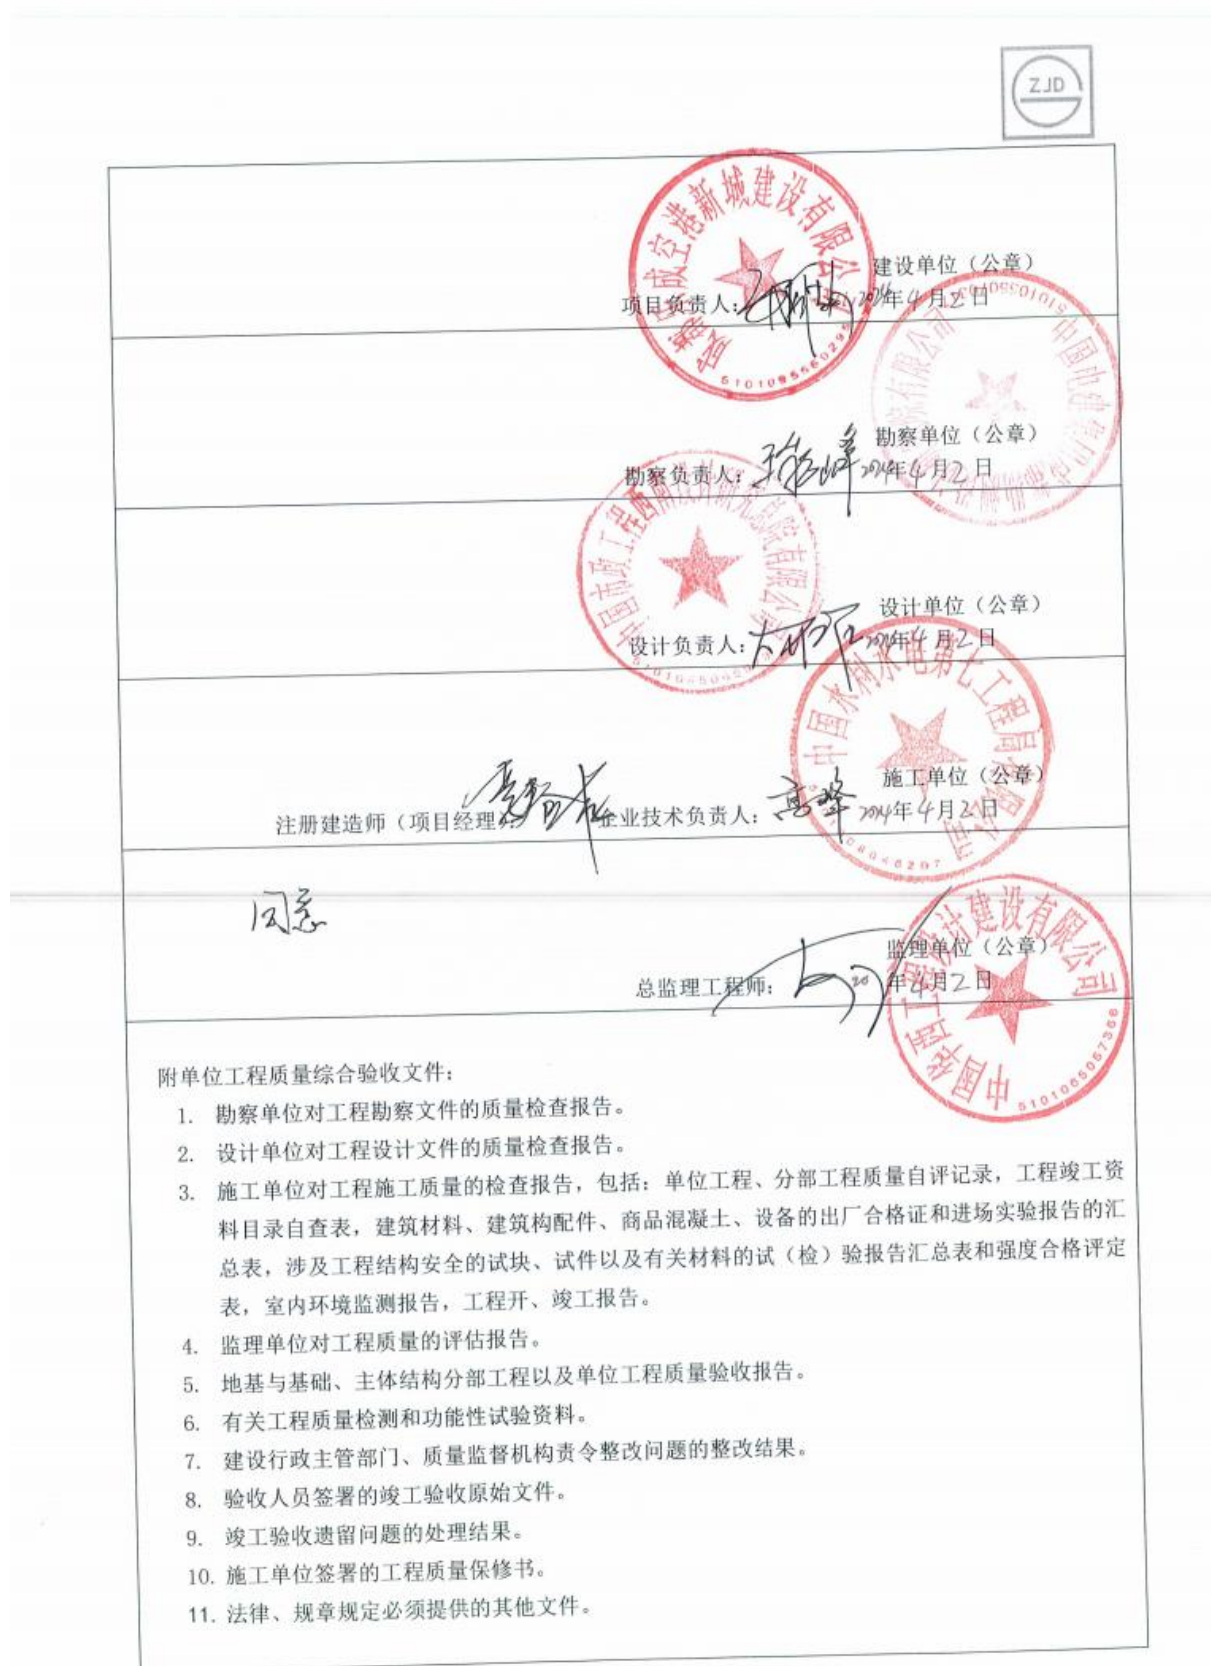 ZJD
成都空港新城建设有限公司
建设单位（公章）
项目负责人：
2024年4月2日
勘察单位（公章）
勘察负责人：
2024年4月2日
中国市政工程西南设计研究总院有限公司
设计单位（公章）
设计负责人：
2024年4月2日
中国水利水电第七工程局有限公司
施工单位（公章）
注册建造师（项目经理）： 企业技术负责人：高峰
2024年4月2日
同意
中国华西工程设计建设有限公司
监理单位（公章）
总监理工程师：
年4月2日
5101065057366
附单位工程质量综合验收文件：
1. 勘察单位对工程勘察文件的质量检查报告。
2. 设计单位对工程设计文件的质量检查报告。
3. 施工单位对工程施工质量的检查报告，包括：单位工程、分部工程质量自评记录，工程竣工资
料目录自查表，建筑材料、建筑构配件、商品混凝土、设备的出厂合格证和进场实验报告的汇
总表，涉及工程结构安全的试块、试件以及有关材料的试（检）验报告汇总表和强度合格评定
表，室内环境监测报告，工程开、竣工报告。
4. 监理单位对工程质量的评估报告。
5. 地基与基础、主体结构分部工程以及单位工程质量验收报告。
6. 有关工程质量检测和功能性试验资料。
7. 建设行政主管部门、质量监督机构责令整改问题的整改结果。
8. 验收人员签署的竣工验收原始文件。
9. 竣工验收遗留问题的处理结果。
10. 施工单位签署的工程质量保修书。
11. 法律、规章规定必须提供的其他文件。